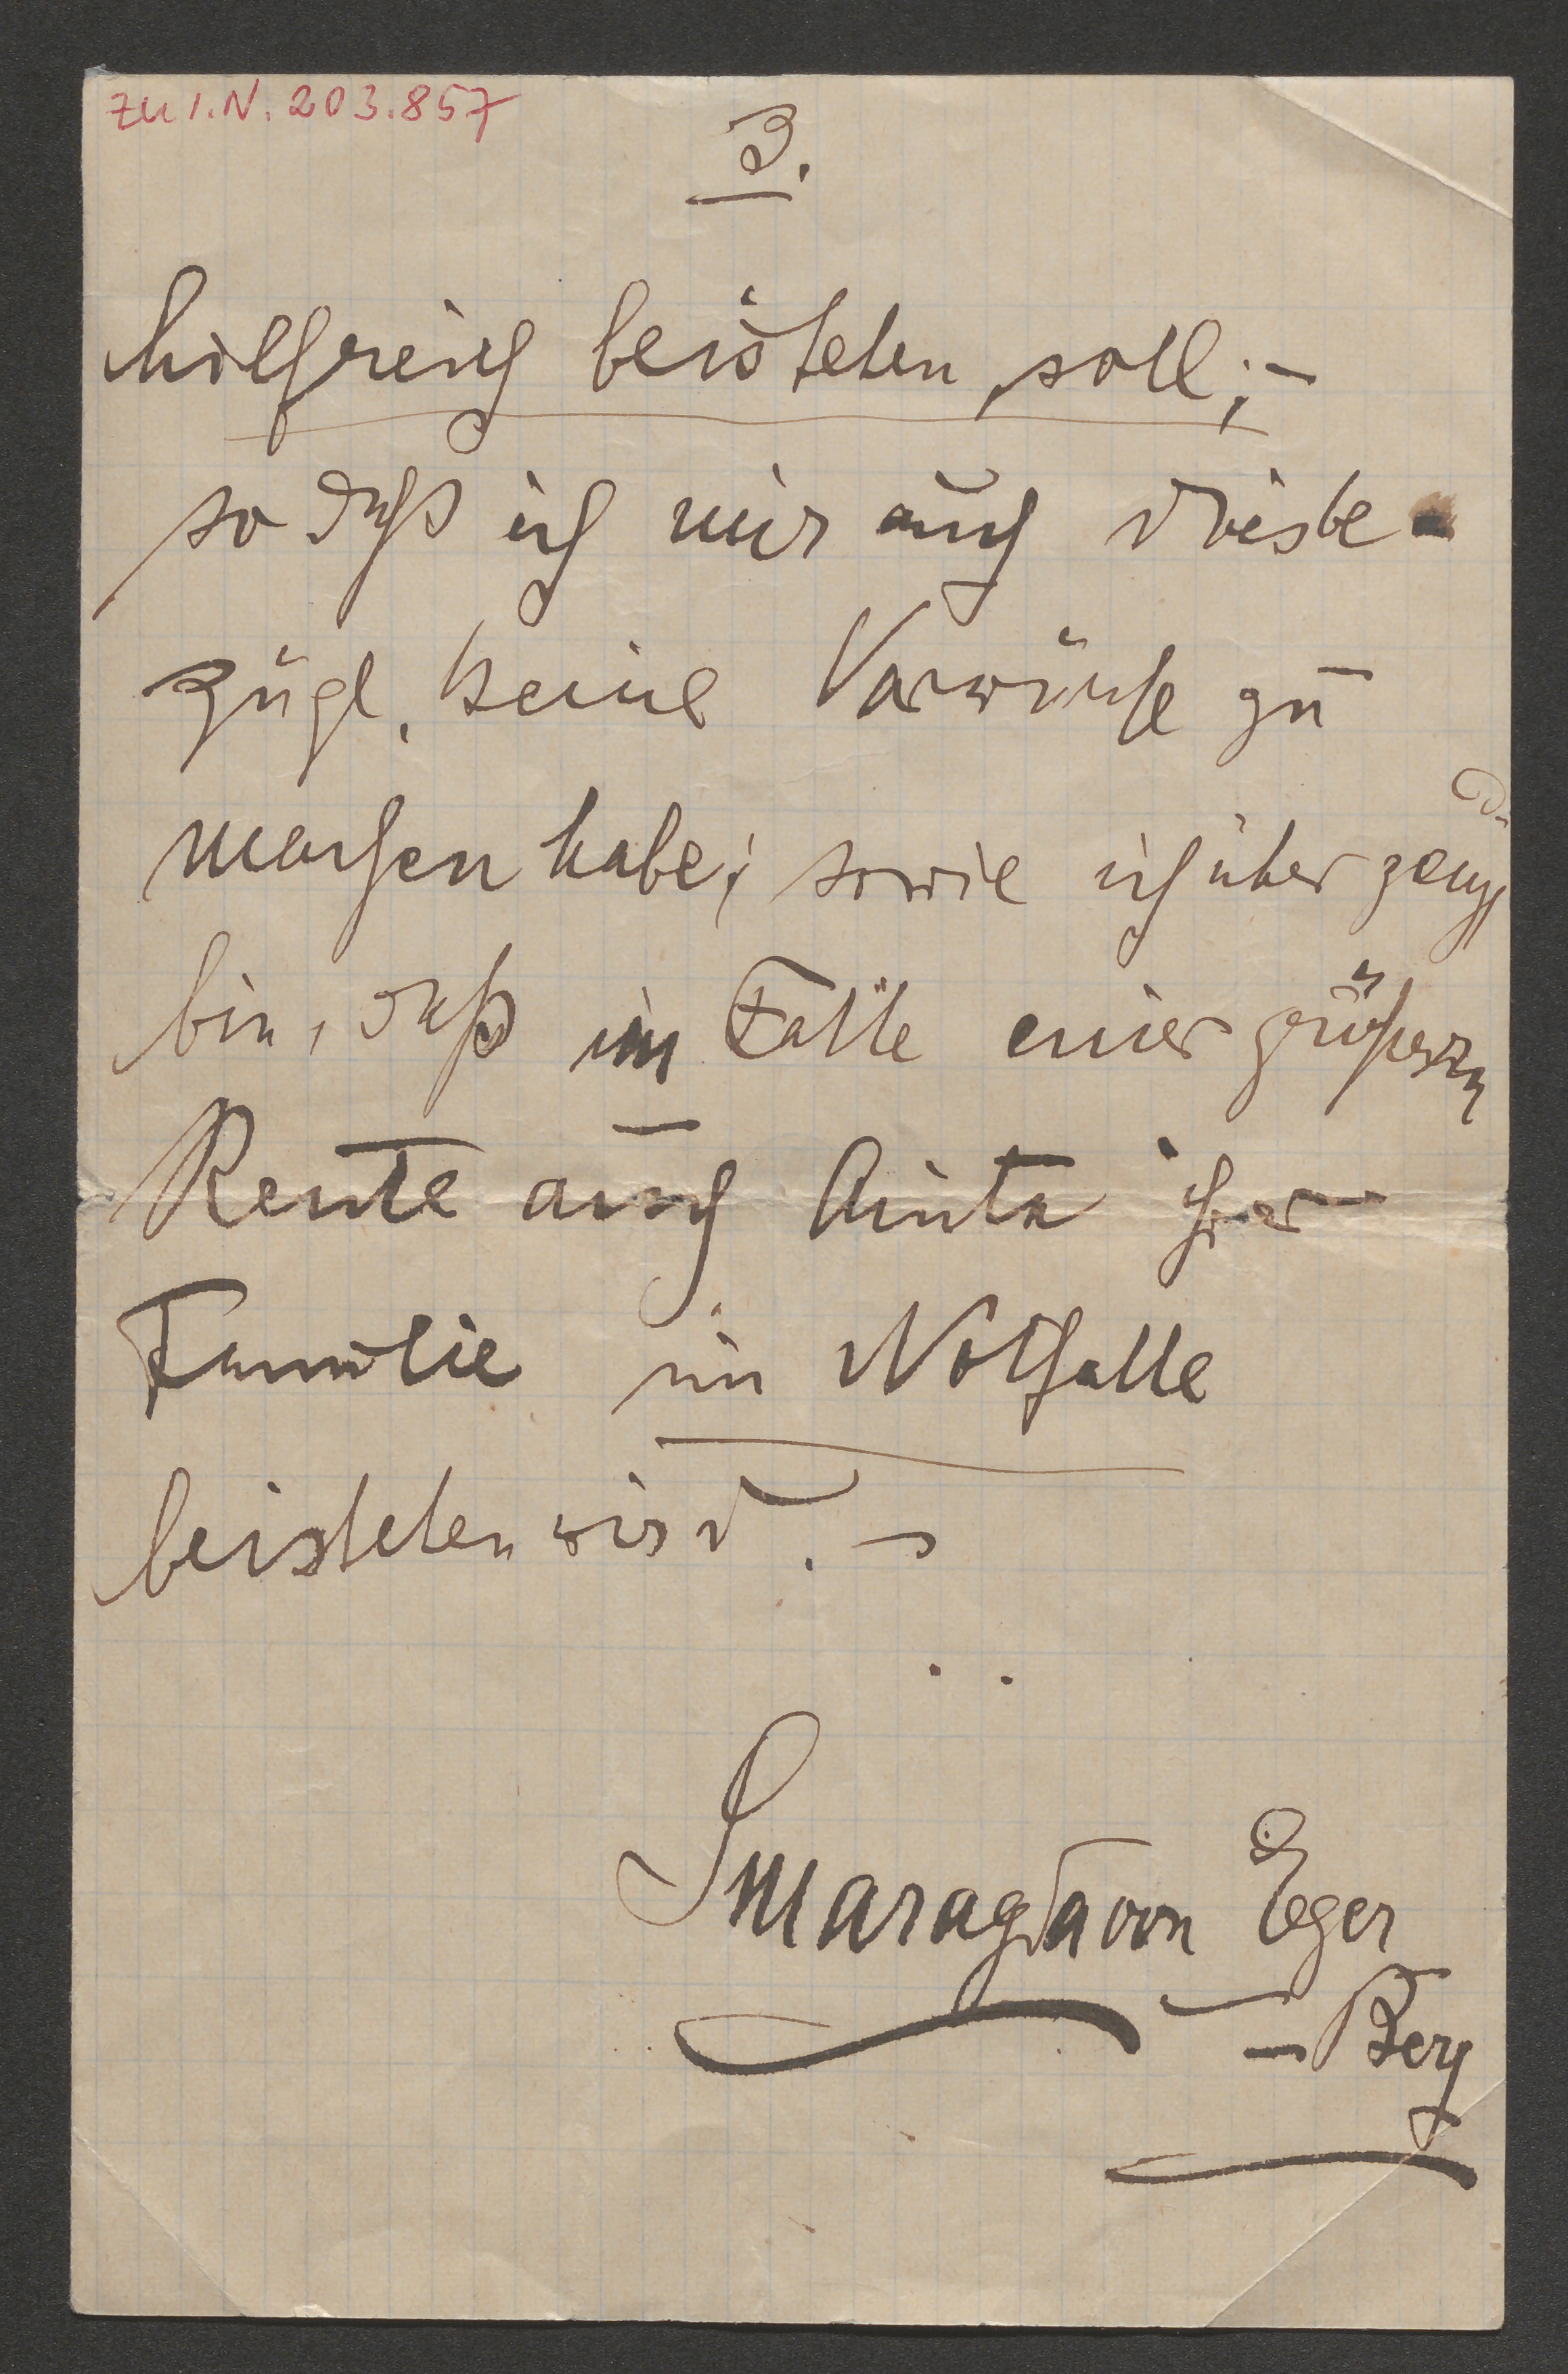 zu I.N. 203.857
3.
hilfreich beistehen soll; –
so daß ich mir auch diesbe-
zügl. keine Vorwürfe zu
machen habe; sowie ich überzeugt
bin, daß im Falle einer größeren
Rente auch Anita ihrer
Familie im Notfalle
beistehen wird. –
Smaragda von Eger
– Berg